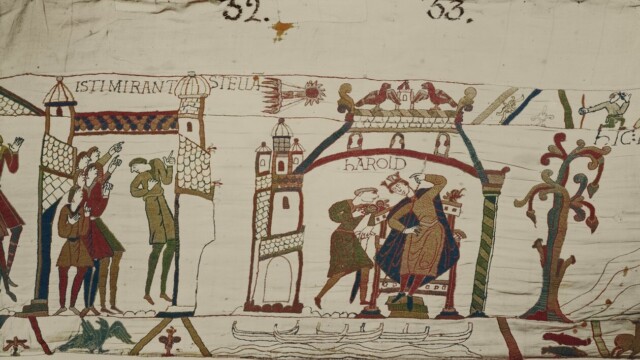 32. 33.
ISTI MIRANT STELLA
HAROLD
HIC: